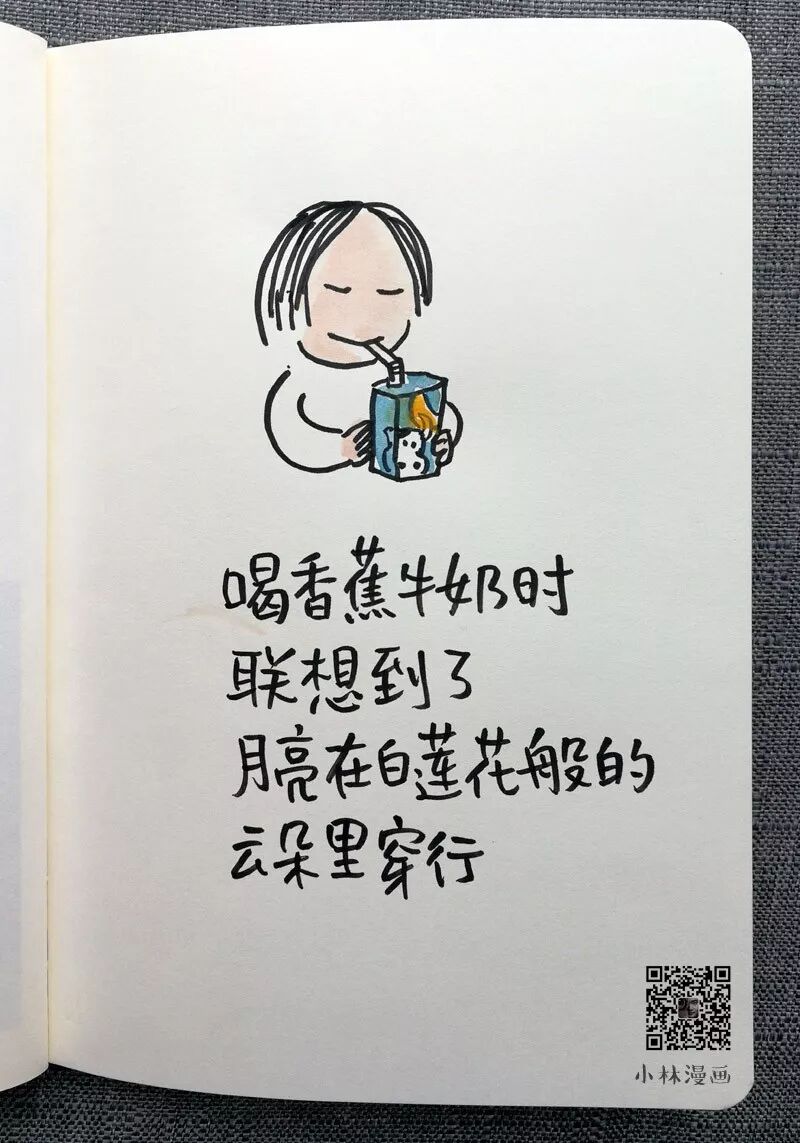 喝香蕉牛奶时
联想到了
月亮在白莲花般的
云朵里穿行
小林漫画